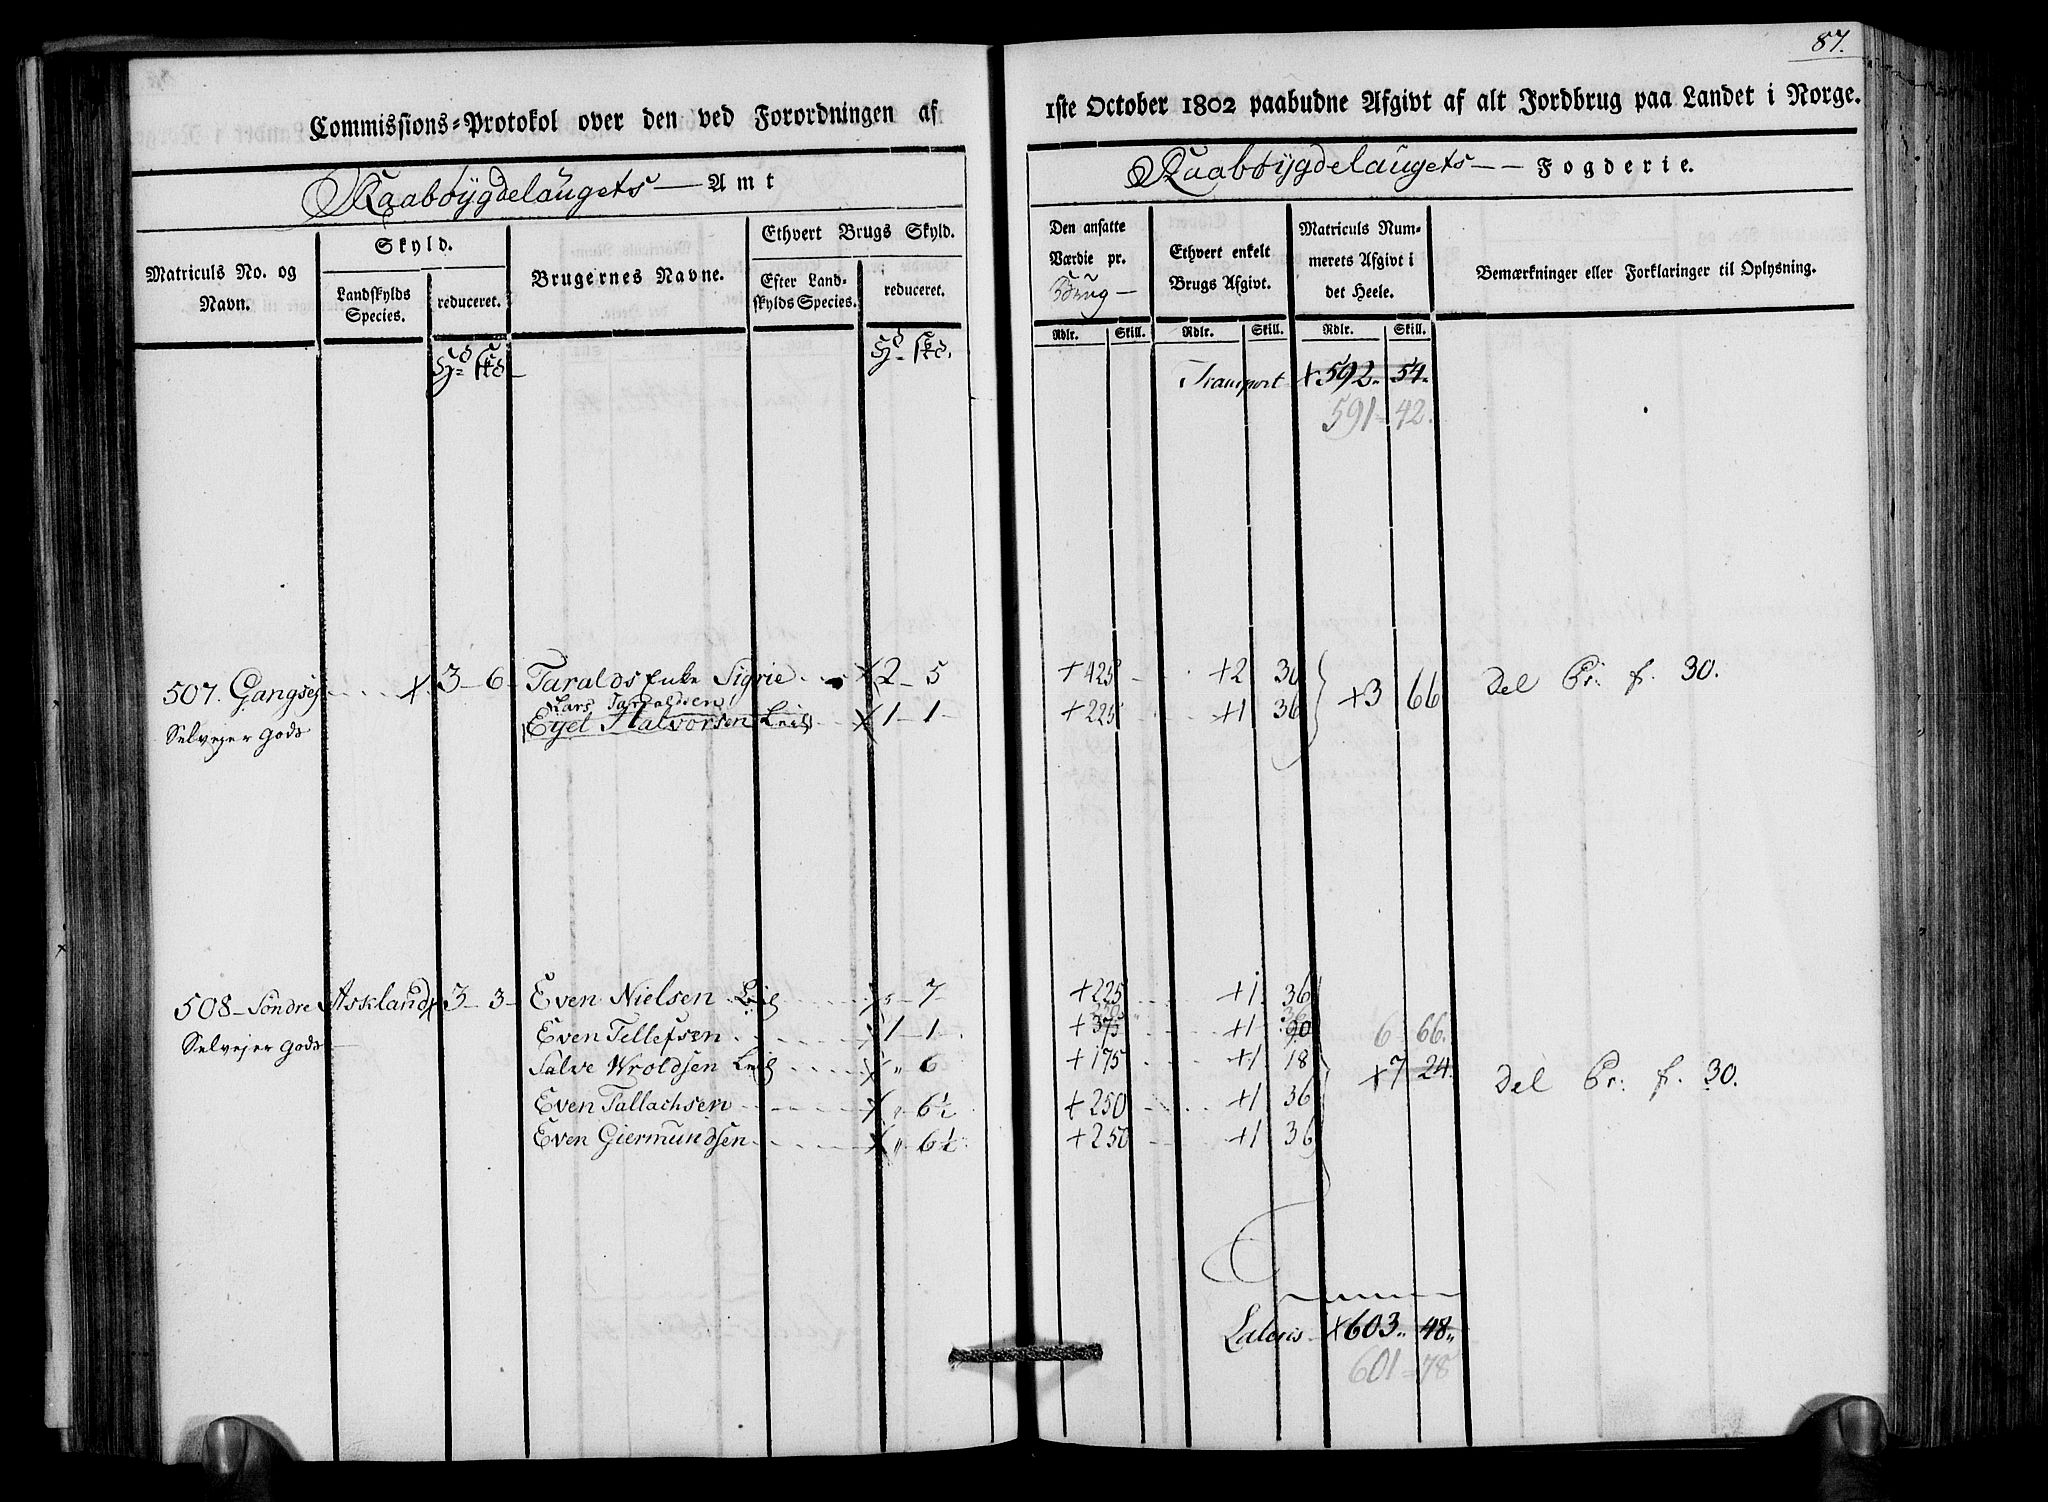 87.
Commissions-Protokol over den ved Forordningen af 1ste October 1802 paabudne Afgivt af alt Jordbrug paa Landet i Norge.
Raabøÿgdelaugets — Amt
Raabøÿgdelaugets — Fogderie.
Matriculs No. og Navn.
Skyld.
Landskylds Species.
reduceret.
Brugernes Navne.
Ethvert Brugs Skyld.
Efter Landskylds Species.
reduceret.
Den ansatte Værdie pr. Brug —
Ethvert enkelt Brugs Afgivt.
Matriculs Nummerets Afgivt i det Heele.
Bemærkninger eller Forklaringer til Oplysning.
Rdlr. Skill. Rdlr. Skill. Rdlr. Skill.
Transport + 592. 54.
591 = 42.
507. Gangsej X 3 — 6 Taralds Enke Sigrie X 2 — 5 + 425 +2 30
Lars Taraldsen
Eyel Halvorsen Leil X 1 — 1 — + 225 +1 36
+3 66 Del Pr. f. 30.
Selvejer Gods
508 — Søndre Askland X 3 — 3 — Even Nielsen Leil X 5 — 7 — + 225 +1. 36
250 36
Even Tellefsen X 1 — 1 + 375 +1 90 6 66.
Selvejer Gods
Salve Wroldsen Leil X „ 6 + 175 +1 18
+7 24. Del Pr: f. 30.
Even Tallachsen X „ 6½ + 250 +1 36
Even Giermundsen X „ 6½ + 250 +1 36
Lateris X 603„ 48„
601 = 78